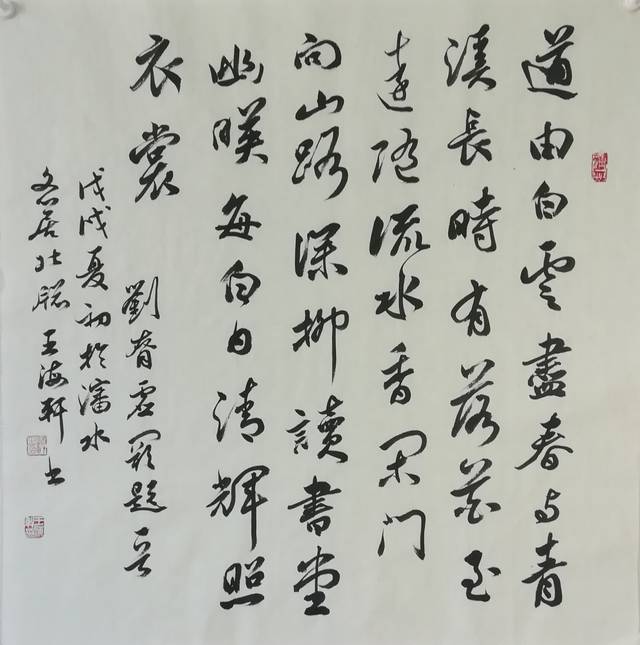 道由白雲盡春与青
溪長時有落花至
遠隨流水香閑門
向山路深柳讀書堂
幽映每白日清輝照
衣裳
劉眘虛闕題
戊戌夏初於瀋水
居北窓王海軒书